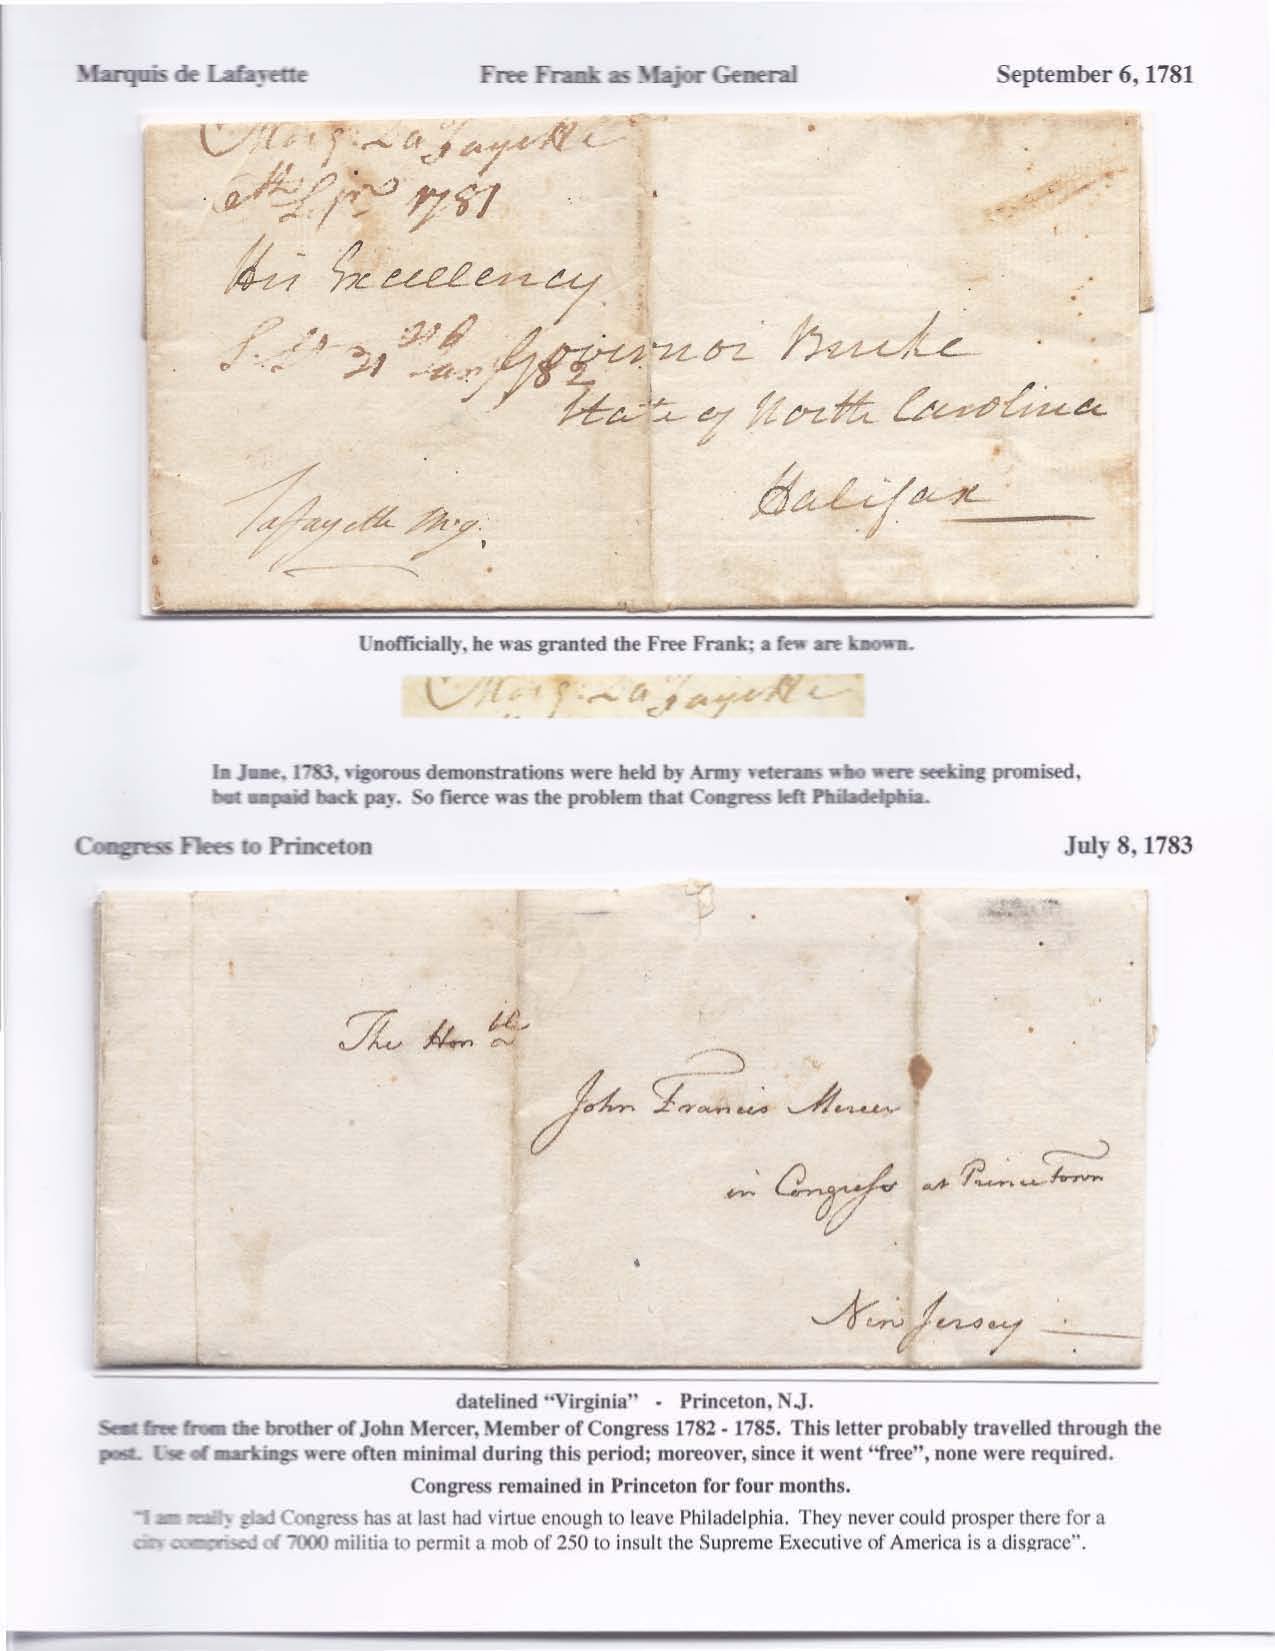 Marquis de Lafayette Free Frank as Major General September 6, 1781
Marq. La Fayette
6th Sepr 1781
His Excellency
Governor Burke
21 Jany 82
State of North Carolina
Halifax
Lafayette M.g.
Unofficially, he was granted the Free Frank; a few are known.
Marq. La Fayette
In June, 1783, vigorous demonstrations were held by Army veterans who were seeking promised,
but unpaid back pay. So fierce was the problem that Congress left Philadelphia.
Congress Flees to Princeton July 8, 1783
The Honble
John Francis Mercer
in Congress at PrinceTown
New Jersey
datelined “Virginia” - Princeton, N.J.
Sent free from the brother of John Mercer, Member of Congress 1782 - 1785. This letter probably travelled through the
post. Use of markings were often minimal during this period; moreover, since it went “free”, none were required.
Congress remained in Princeton for four months.
“I am really glad Congress has at last had virtue enough to leave Philadelphia. They never could prosper there for a
city comprised of 7000 militia to permit a mob of 250 to insult the Supreme Executive of America is a disgrace”.